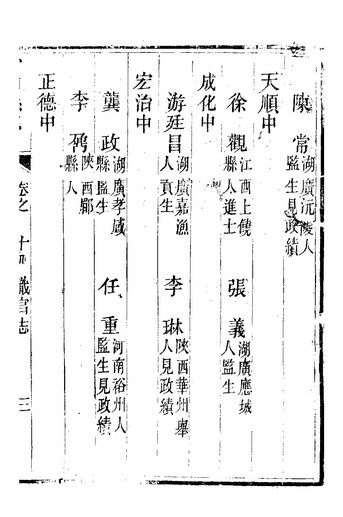 陳常湖廣沅陵人監生見政績
天順中
徐觀江西上饒縣人進士 張義湖廣應城人監生
成化中
游廷昌湖廣嘉漁人貢生 李琳陝西華州舉人見政績
宏治中
龔政湖廣孝感縣監生 任重河南裕州人監生見政績
李鵶陝西鄠縣人
正德中
卷之十 職官志 三